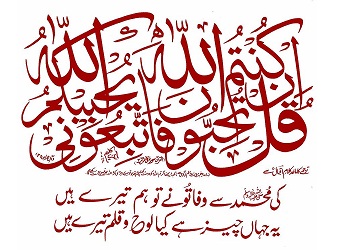 قُلْ إِنْ كُنْتُمْ تُحِبُّونَ اللهَ فَاتَّبِعُونِي يُحْبِبْكُمُ اللهُ
کی محمدؐ سے وفا تُو نے تو ہم تیرے ہیں
یہ جہاں چیز ہے کیا لوح و قلم تیرے ہیں